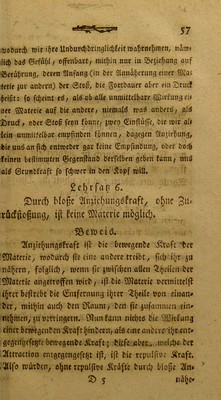 57
wodurch wir ihre Undurchdringlichkeit wahrnehmen, näm-
lich das Gefühl, offenbart, mithin nur in Beziehung auf
Berührung, deren Anfang (in der Annäherung einer Ma-
terie zur andern) der Stoß, die Fortdauer aber ein Druck
heißt: so scheint es, als ob alle unmittelbare Wirkung ei-
ner Materie auf die andere, niemals was anders, als
Druck, oder Stoß seyn könne, zwey Einflüsse, die wir al-
lein unmittelbar empfinden können, dagegen Anziehung,
die uns an sich entweder gar keine Empfindung, oder doch
keinen bestimmten Gegenstand derselben geben kann, uns
als Grundkraft so schwer in den Kopf will.
Lehrsatz 6.
Durch bloße Anziehungskraft, ohne Zu-
rückstoßung, ist keine Materie möglich.
Beweis.
Anziehungskraft ist die bewegende Kraft der
Materie, wodurch sie eine andere treibt, sich ihr zu
nähern, folglich, wenn sie zwischen allen Theilen der
Materie angetroffen wird, ist die Materie vermittelst
ihrer bestrebt die Entfernung ihrer Theile von einan-
der, mithin auch den Raum, den sie zusammen ein-
nehmen, zu verringern. Nun kann nichts die Wirkung
einer bewegenden Kraft hindern, als eine andere ihr ent-
gegengesetzte bewegende Kraft; diese aber, welche der
Attraction entgegengesetzt ist, ist die repulsive Kraft.
Also würden, ohne repulsive Kräfte durch bloße An-
D 5 nähe-